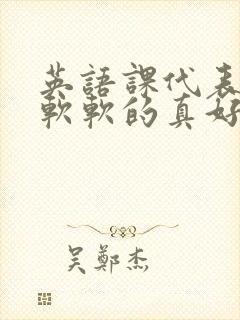 英語課代表
軟軟的真好
吴鄭杰